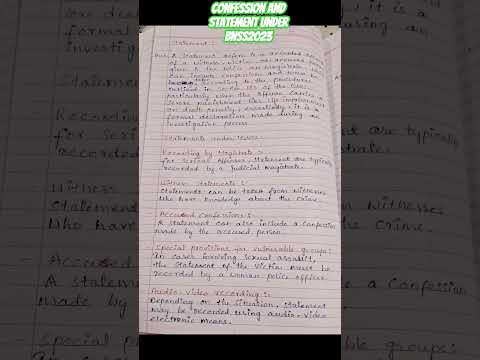 CONFESSION AND
STATEMENT UNDER
BNSS2023
Statement :
A statement refers to a recorded
of a witness, victim or accused person
given to the police or magistrate
can include confession and
according to the procedures
outlined in section 183 of the BNSS
particularly when the offense carries
severe punishment like life imprisonment
or death penalty; essentially, it is a
formal declaration made during an
investigation process.
Statements under
Recording by Magistrate :-
For serious offenses, statement are typically
recorded by a judicial magistrate.
Witness Statements :-
Statements can be taken from witnesses
who have knowledge about the crime.
Accused Confessions :-
A statement can also include a confession
made by the accused person.
Special provisions for vulnerable groups :-
In cases involving sexual assault,
the statement of the victim must be
recorded by a woman police officer.
Audio-video recording :-
Depending on the situation, statement
may be recorded using audio-video
electronic means.